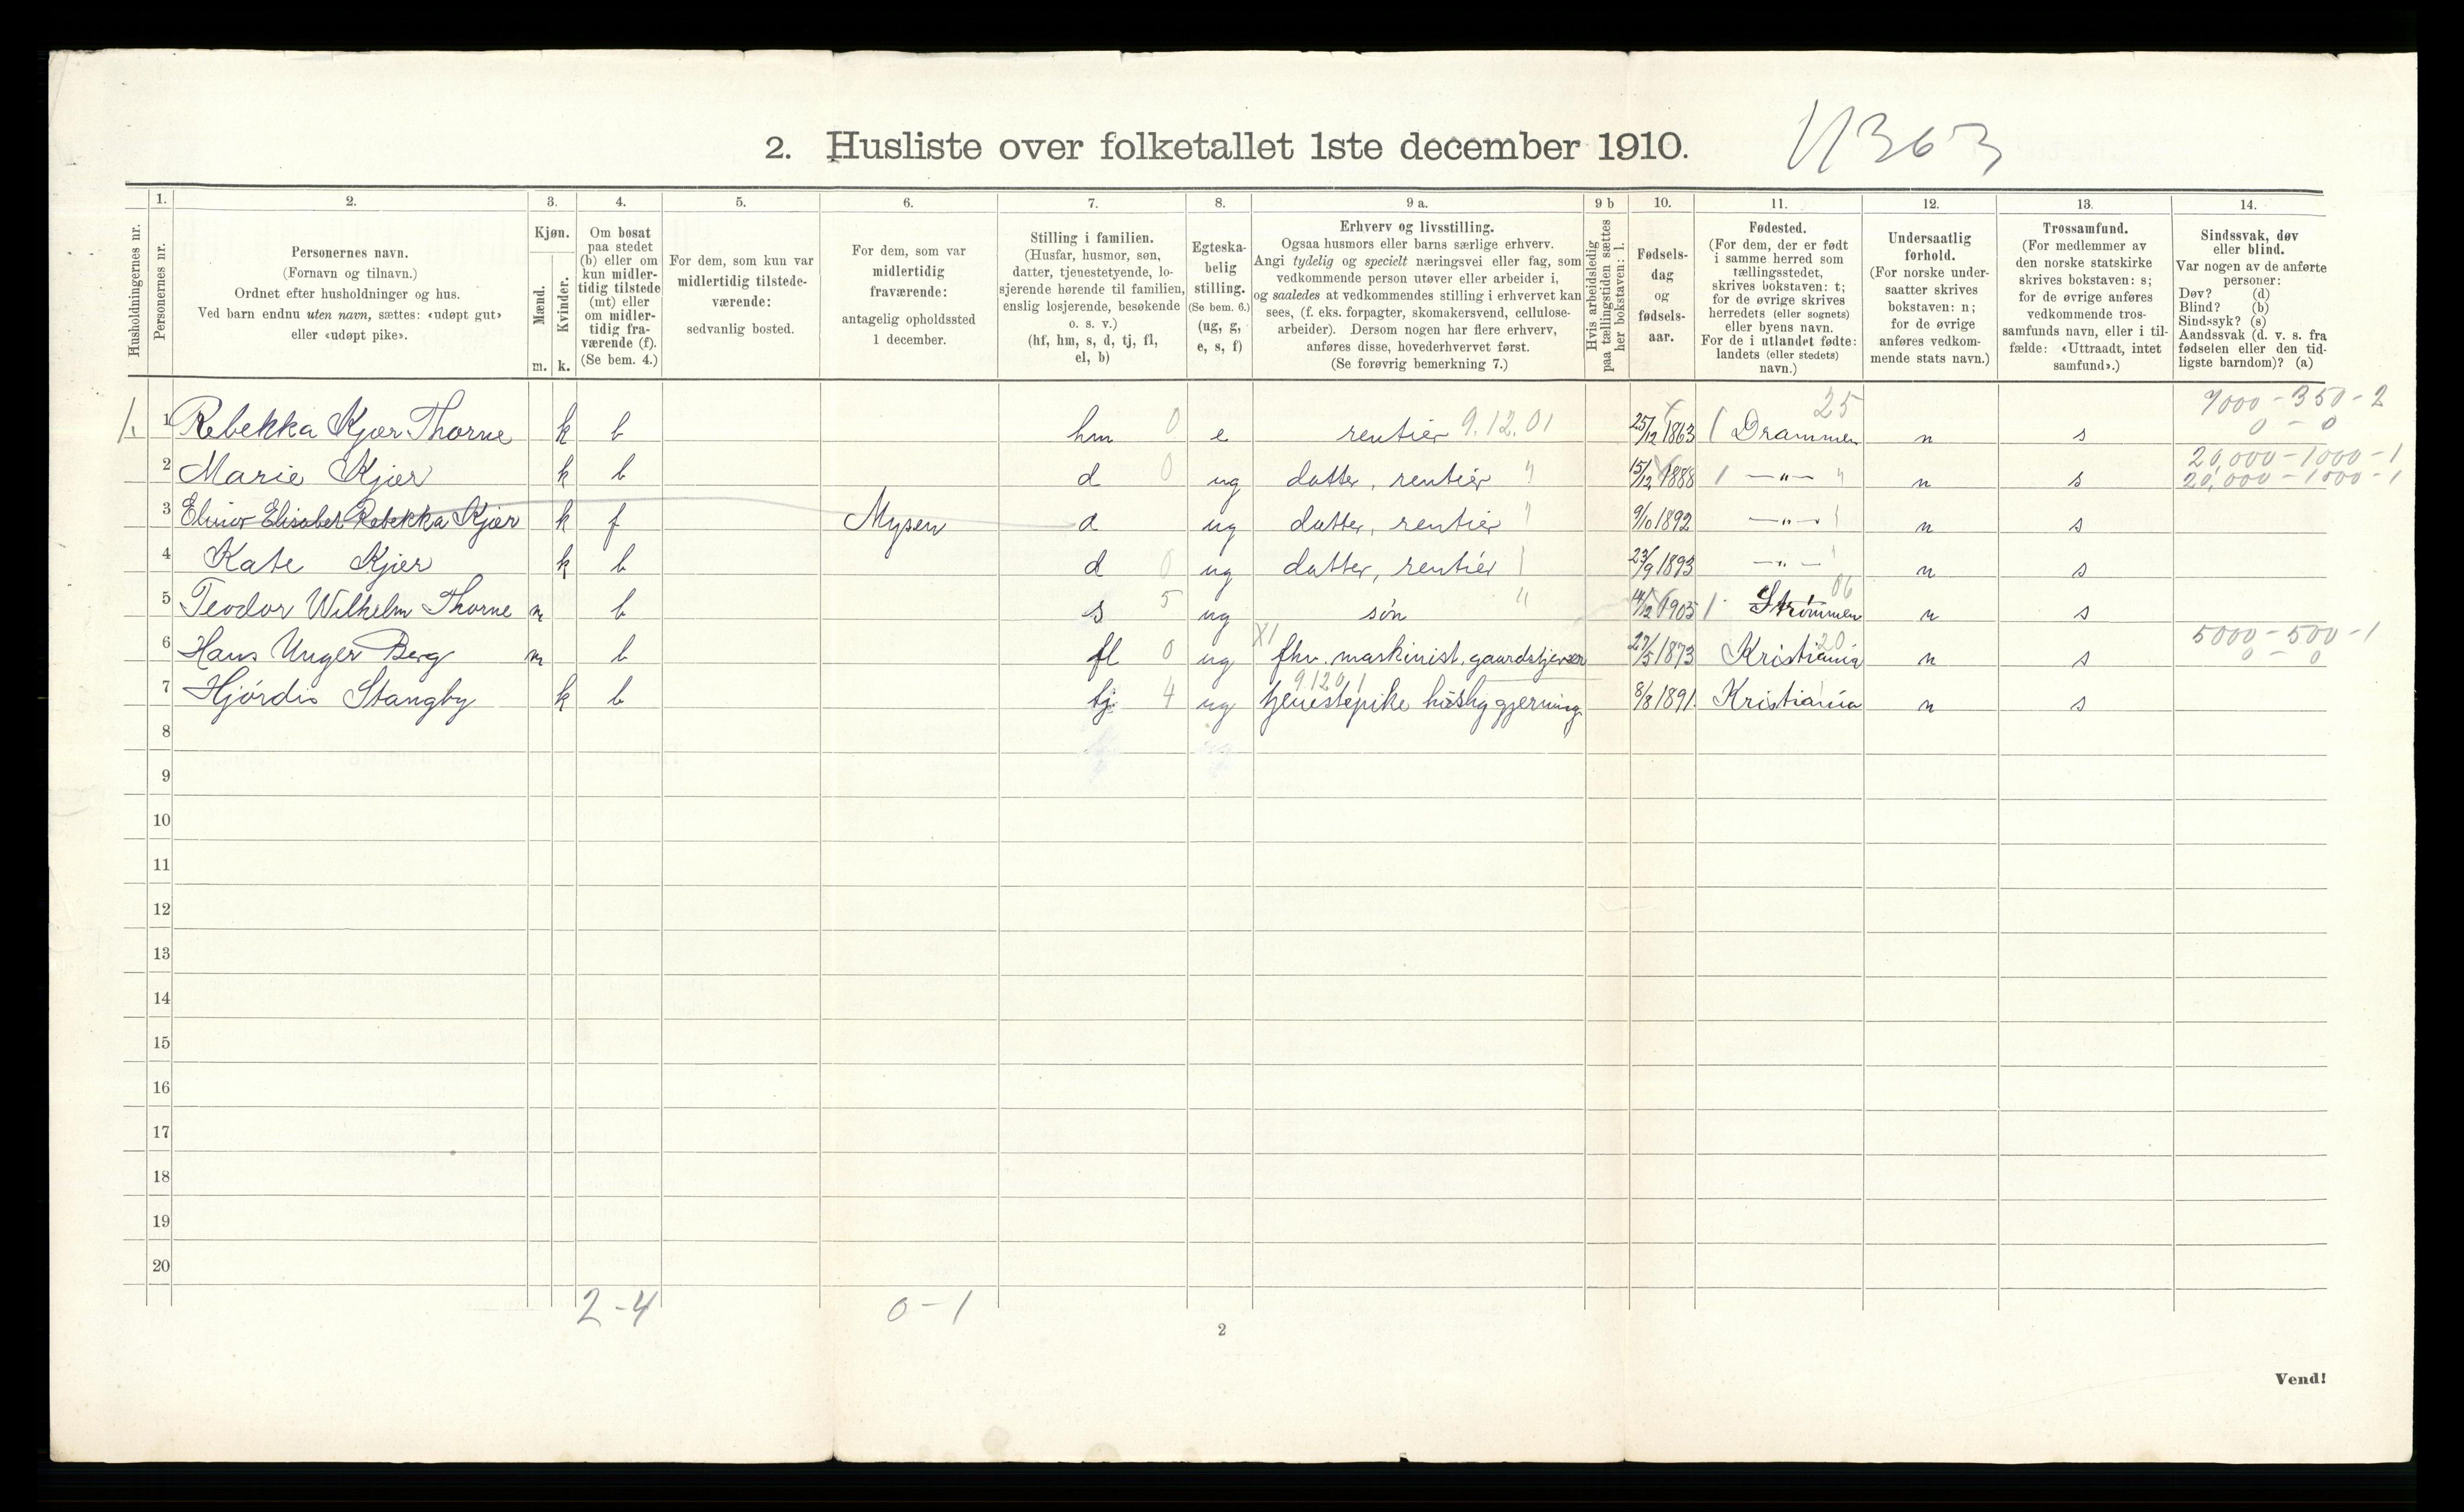 2. Husliste over folketallet 1ste december 1910.
11363
Husholdningernes nr.
1.
Personernes nr.
2.
Personernes navn.
(Fornavn og tilnavn.)
Ordnet efter husholdninger og hus.
Ved barn endnu uten navn, sættes: «udøpt gut»
eller «udøpt pike».
3.
Kjøn.
Mænd.
Kvinder.
m. k.
4.
Om bosat
paa stedet
(b) eller om
kun midler-
tidig tilstede
(mt) eller
om midler-
tidig fra-
værende (f).
(Se bem. 4.)
5.
For dem, som kun var
midlertidig tilstede-
værende:
sedvanlig bosted.
6.
For dem, som var
midlertidig
fraværende:
antagelig opholdssted
1 december.
7.
Stilling i familien.
(Husfar, husmor, søn,
datter, tjenestetyende, lo-
sjerende hørende til familien,
enslig losjerende, besøkende
o. s. v.)
(hf, hm, s, d, tj, fl,
el, b)
8.
Egteska-
belig
stilling.
(Se bem. 6.)
(ug, g,
e, s, f)
9 a.
Erhverv og livsstilling.
Ogsaa husmors eller barns særlige erhverv.
Angi tydelig og specielt næringsvei eller fag, som
vedkommende person utøver eller arbeider i,
og saaledes at vedkommendes stilling i erhvervet kan
sees, (f. eks. forpagter, skomakersvend, cellulose-
arbeider). Dersom nogen har flere erhverv,
anføres disse, hovederhvervet først.
(Se forøvrig bemerkning 7.)
9 b
Hvis arbeidsledig
paa tællingstiden sættes
her bokstaven: l.
10.
Fødsels-
dag
og
fødsels-
aar.
11.
Fødested.
(For dem, der er født
i samme herred som
tællingsstedet,
skrives bokstaven: t;
for de øvrige skrives
herredets (eller sognets)
eller byens navn.
For de i utlandet fødte:
landets (eller stedets)
navn.)
12.
Undersaatlig
forhold.
(For norske under-
saatter skrives
bokstaven: n;
for de øvrige
anføres vedkom-
mende stats navn.)
13.
Trossamfund.
(For medlemmer av
den norske statskirke
skrives bokstaven: s;
for de øvrige anføres
vedkommende tros-
samfunds navn, eller i til-
fælde: «Uttraadt, intet
samfund».)
14.
Sindssvak, døv
eller blind.
Var nogen av de anførte
personer:
Døv? (d)
Blind? (b)
Sindssyk? (s)
Aandssvak (d. v. s. fra
fødselen eller den tid-
ligste barndom)? (a)
25 7000 - 350 - 2
1. 1 Rebekka Kjær Thorne k b hm 0 e rentier 9.12.01 25/12 1863 Drammen n s 0 - 0
20,000 - 1000 - 1
2 Marie Kjær k b d 0 ug datter, rentier " 15/12 1888 — " — n s 20,000 - 1000 - 1
3 Elinor Elisabet Rebekka Kjær k f Mysen d ug datter, rentier " 9/10 1892 — " — n s
4 Kate Kjær k b d 0 ug datter, rentier 23/9 1893 — " — n s
06
5 Teodor Wilhelm Thorne m b s 5 ug søn " 14/12 1905 Strømmen n s
5000 - 500 - 1
6 Hans Unger Berg m b fl 0 ug X1 fhv. maskinist, gaardstjener 27/5 1873 Kristiania 20 n s 0 - 0
9.12.01
7 Hjørdis Stangby k b tj 4 ug tjenestepike huslig gjerning 8/8 1891 Kristiania n s
8
9
10
11
12
13
14
15
16
17
18
19
20
2 - 4 0 - 1
2
Vend!